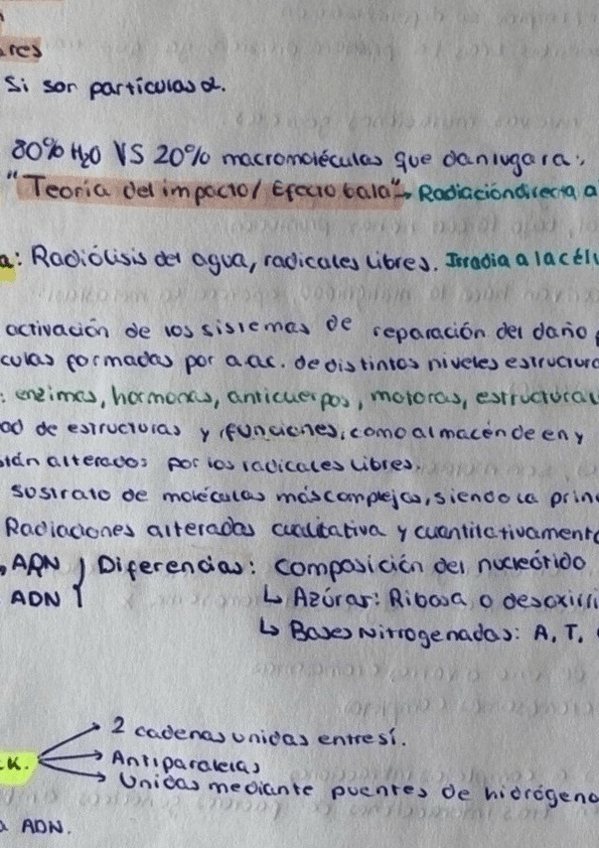 res
Si son partículas α.
80% H₂O VS 20% macromoléculas que dan lugar a:
"Teoría del impacto/ Efecto bala" → Radiación directa a
a: Radiólisis del agua, radicales libres. Irradia a la célu
activación de los sistemas de reparación del daño p
culas formadas por a.ac. de distintos niveles estructura
: enzimas, hormonas, anticuerpos, motoras, estructural
ad de estructuras y funciones, como almacén de en y
stán alterados por los radicales libres.
sustrato de moléculas más complejas, siendo la prin
Radiaciones alteradas cualitativa y cuantitativamente
ARN } Diferencias: Composición del nucleótido
ADN ↳ Azúcar: Ribosa o desoxirri
↳ Bases Nitrogenadas: A, T,
2 cadenas unidas entre sí.
CK. → Antiparalelas
Unidas mediante puentes de hidrógeno
a ADN.